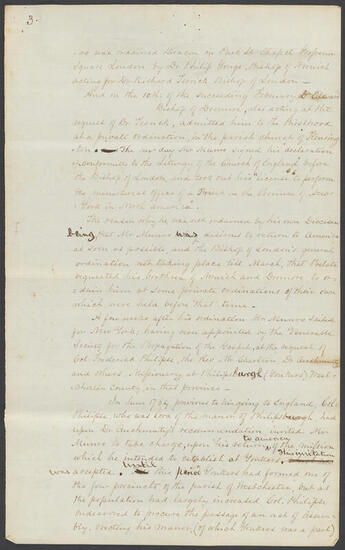 3
was ordained Deacon in Park St Chapel Grosvenor
Square London by Dr Philip Yonge, Bishop of Norwich
acting for Dr Richard Terrick Bishop of London —
And on the 10th of the succeeding February Dr
Bishop of Dromore, also acting at the
request of Dr Terrick, admitted him to the Priesthood
at a private ordination, in the parish church of Kensing
ton. — The same day Mr Munro signed his declaration
of conformity to the Liturgy of the Church of England before
the Bishop of London and took out his "license to perform
the ministerial office of a Priest in the Province of New
York in North America".
The reason why he was not ordained by his own Diocesan
being, that Mr Munro was anxious to return to America
as soon as possible and the Bishop of London's general
ordination not taking place till March, that Prelate
requested his brothers of Norwich and Dromore to or-
dain him at some private ordinations of their own
which were held before that time —
A few weeks after his ordination Mr Munro sailed
for New York, having been appointed by the Venerable
Society for the Propagation of the Gospel, at the request of
Col. Frederick Philipse, the Rev. Dr Auchmuty
and others, Missionary at Philipsburgh (Yonkers) West-
chester County in that province —
In June previous to his going to England, Col.
Philipse who was lord of the manor of Philipsburgh, had
upon Dr Auchmuty's recommendation invited Mr
Munro to take charge, upon his return to America of the mission
which he intended to establish at Yonkers. This invitation
was accepted. — Until this period Yonkers had formed one of
the four precincts of the parish of Westchester, but as
the population had largely increased Col. Philipse
endeavored to procure the passage of an act of Assem-
bly, erecting his Manor (of which Yonkers was a part)